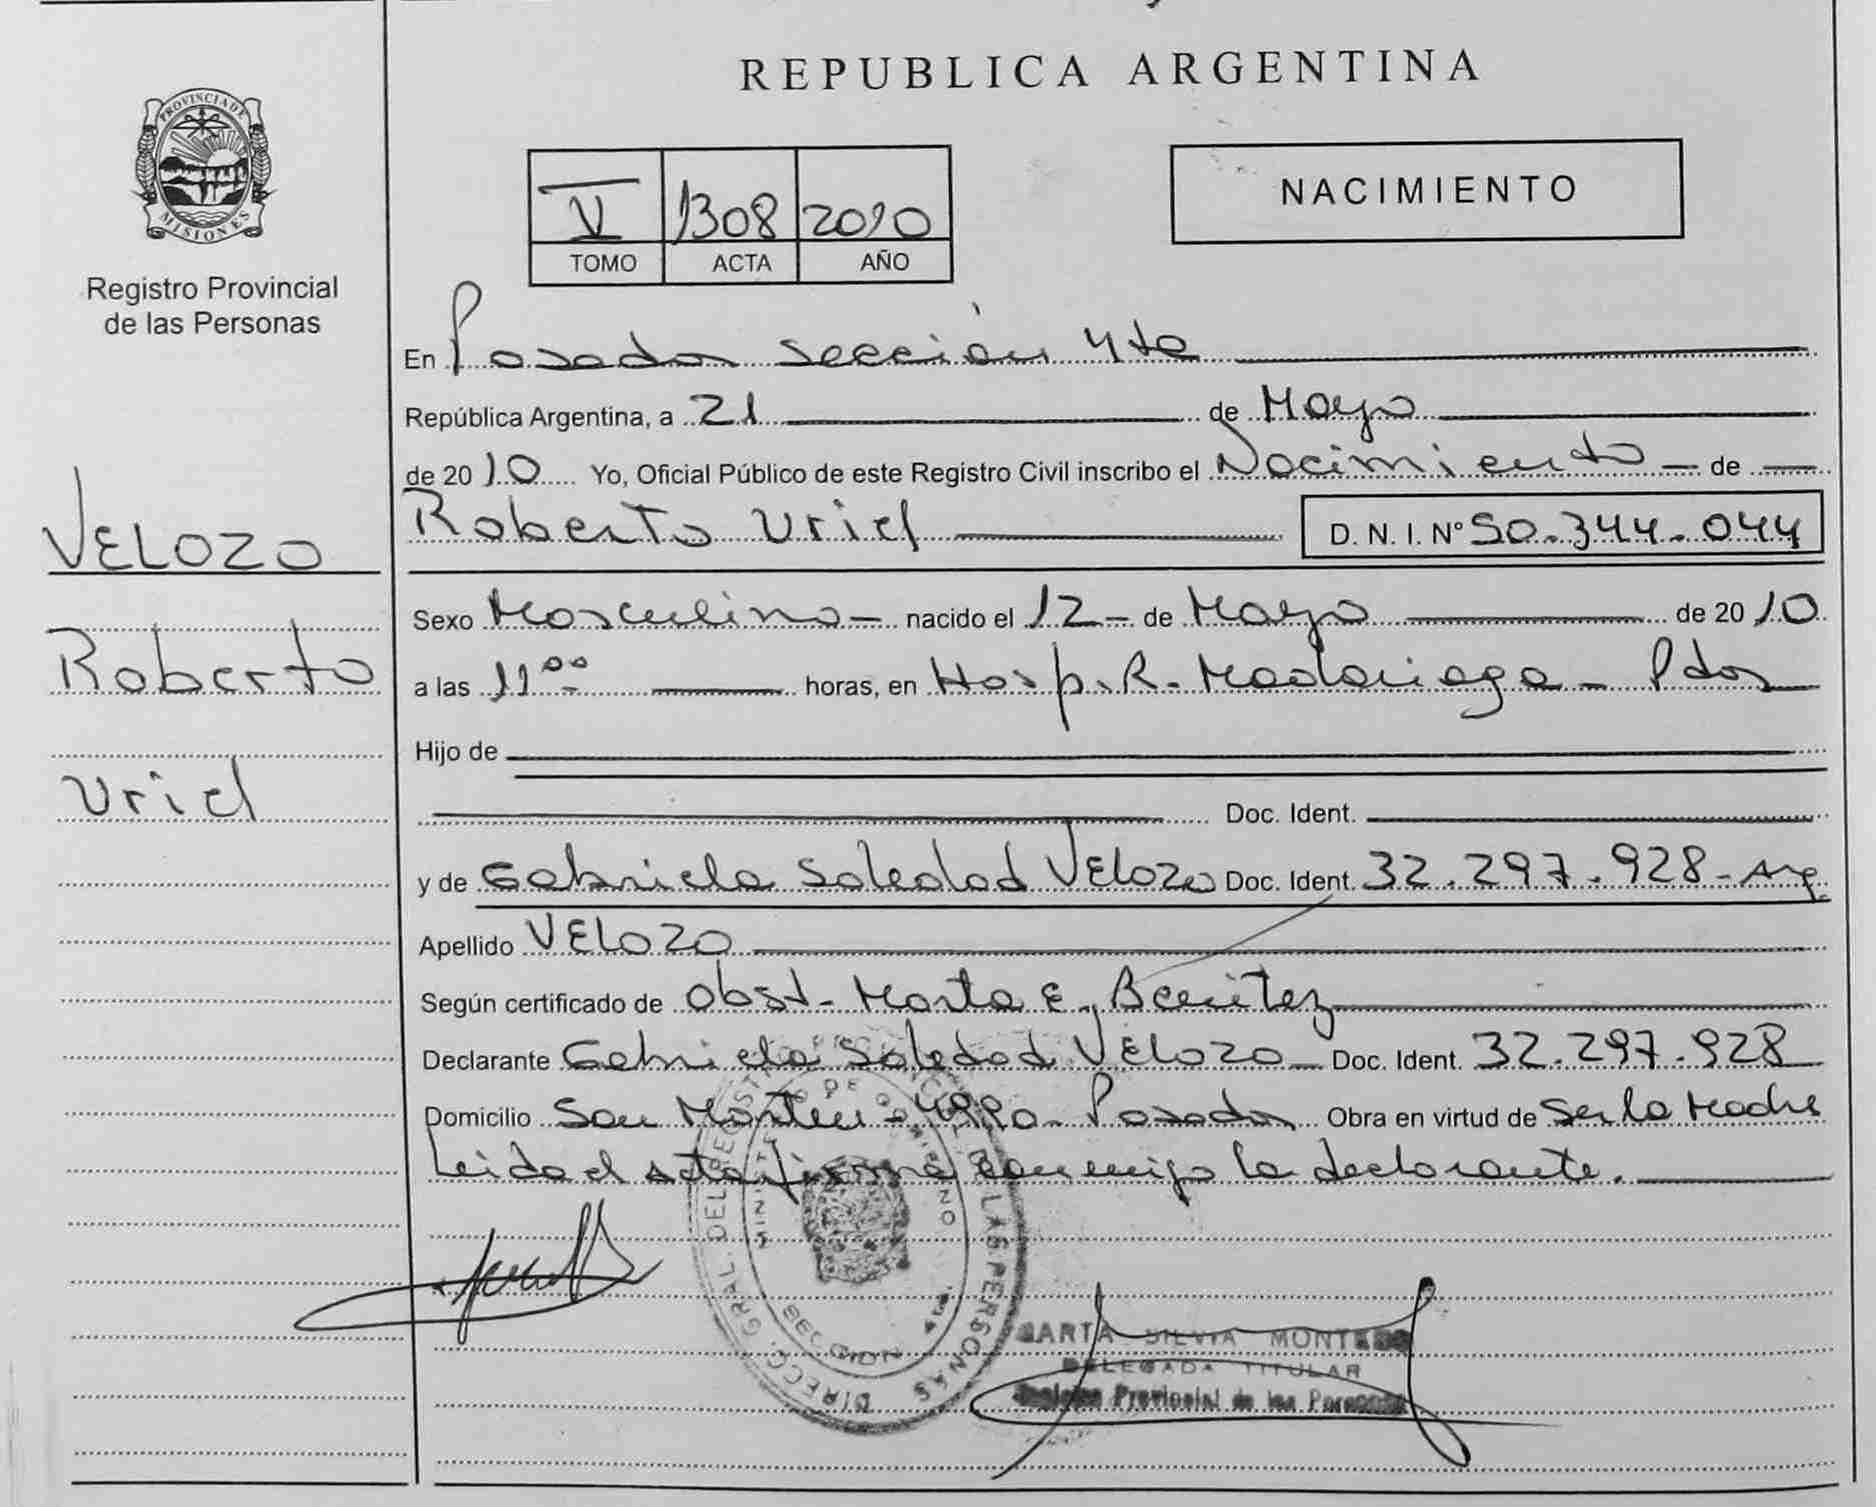 REPUBLICA ARGENTINA
PROVINCIA DE MISIONES
Registro Provincial
de las Personas
V 1308 2010
TOMO ACTA AÑO
NACIMIENTO
VELOZO
Roberto
Uriel
En Posadas sección 4ta
República Argentina, a 21 de Mayo
de 2010 Yo, Oficial Público de este Registro Civil inscribo el Nacimiento de
Roberto Uriel D. N. I. Nº 50.344.044
Sexo Masculino nacido el 12 de Mayo de 2010
a las 11⁰⁰ horas, en Hosp. R. Madariaga - Pdas
Hijo de
Doc. Ident.
y de Gabriela Soledad VELOZO Doc. Ident. 32.297.928 - Arg.
Apellido VELOZO
Según certificado de Obst. Marta E. Benitez
Declarante Gabriela Soledad VELOZO Doc. Ident. 32.297.928
Domicilio San Martin - Posadas Obra en virtud de Ser la Madre
Leida el acta firma conmigo la declarante.
DIRECC. GRAL. DEL REGISTRO DE LAS PERSONAS
SILVIA
DELEGADA TITULAR
Provincial de las Personas